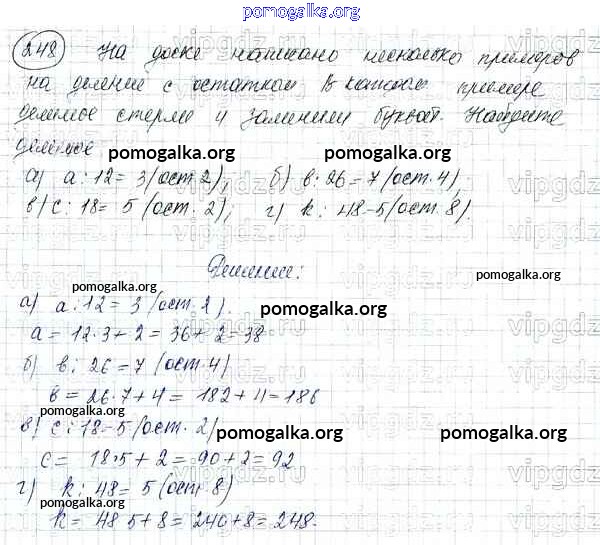 pomogalka.org
248 На доске написано несколько примеров
на деление с остатком В каждом примере
делимое стерли и заменили буквой. Найдите
делимое
pomogalka.org pomogalka.org
а) a : 12 = 3 (ост. 2), б) в : 26 = 7 (ост. 4),
в) С : 18 = 5 (ост. 2); г) k : 48 = 5 (ост. 8)
Решение:
pomogalka.org pomogalka.org
а) a : 12 = 3 (ост. 2). pomogalka.org
a = 12·3 + 2 = 36 + 2 = 38
б) в : 26 = 7 (ост. 4)
в = 26·7 + 4 = 182 + 4 = 186
pomogalka.org
в) с : 18 = 5 (ост. 2) pomogalka.org pomogalka.org
с = 18·5 + 2 = 90 + 2 = 92
г) k : 48 = 5 (ост. 8)
pomogalka.org pomogalka.org
k = 48 5 + 8 = 240 + 8 = 248.